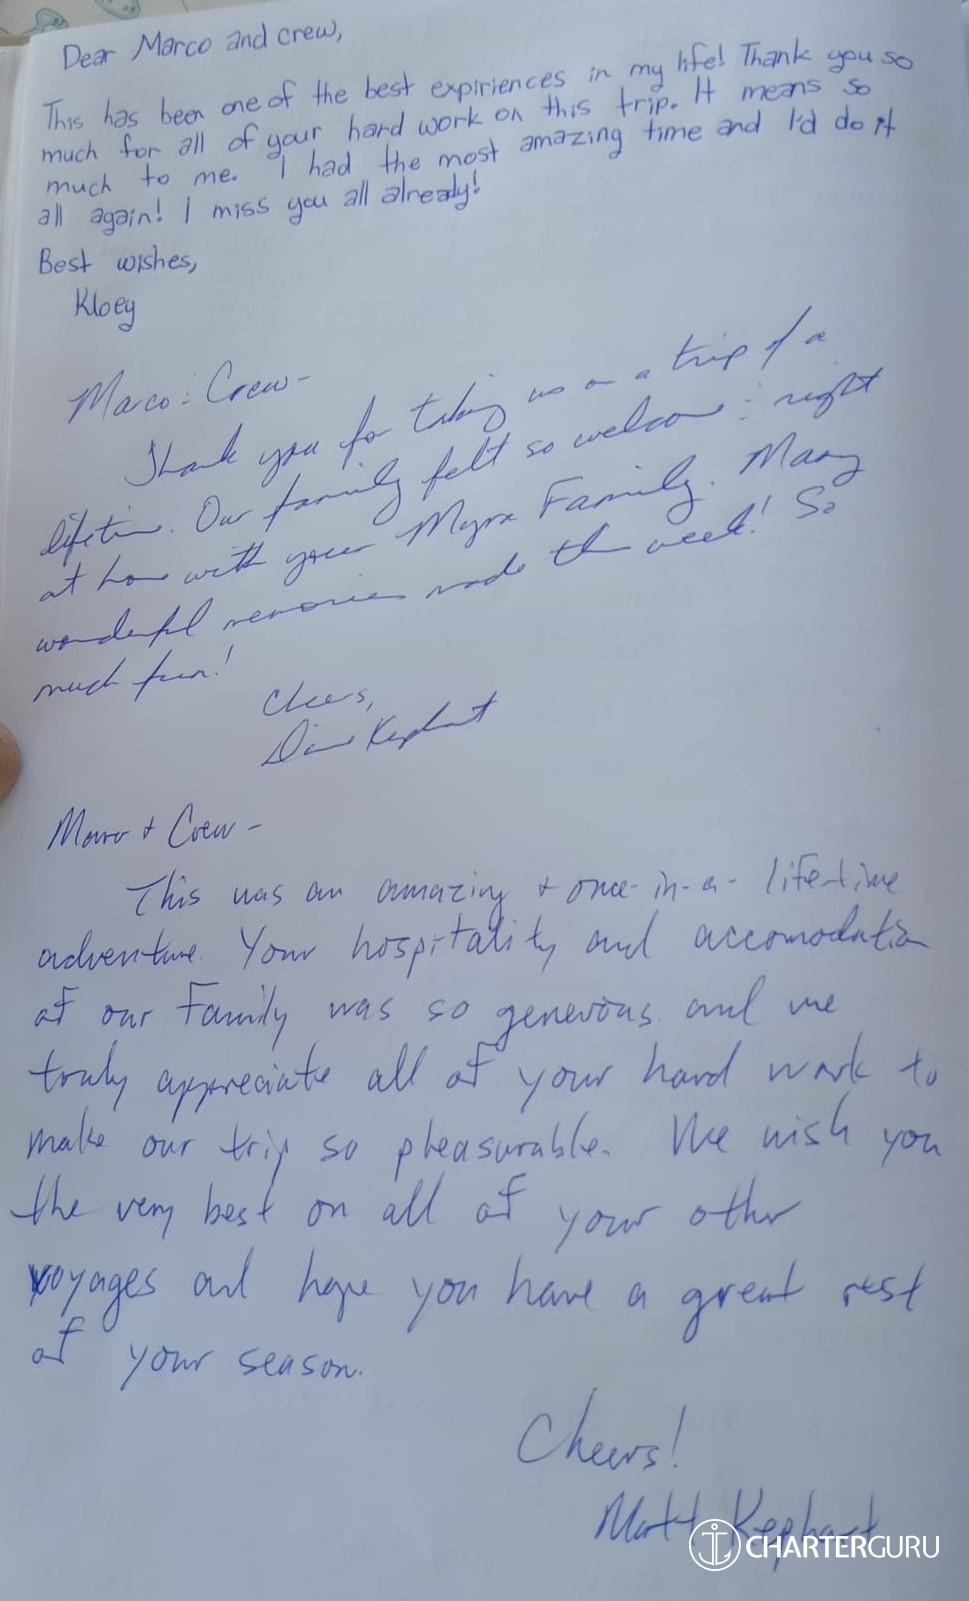 Dear Marco and crew,
This has been one of the best expiriences in my life! Thank you so
much for all of your hard work on this trip. It means so
much to me. I had the most amazing time and I'd do it
all again! I miss you all already!
Best wishes,
Kloey
Marco & Crew -
Thank you for taking us on a trip of a
lifetime. Our family felt so welcome & right
at home with your Myra Family. Many
wonderful memories made this week! So
much fun!
Cheers,
Kephart
Marco + Crew -
This was an amazing + once-in-a-lifetime
adventure. Your hospitality and accomodation
of our Family was so generous and we
truly appreciate all of your hard work to
make our trip so pleasurable. We wish you
the very best on all of your other
voyages and hope you have a great rest
of your season.
Cheers!
Matt Kephart
CHARTERGURU